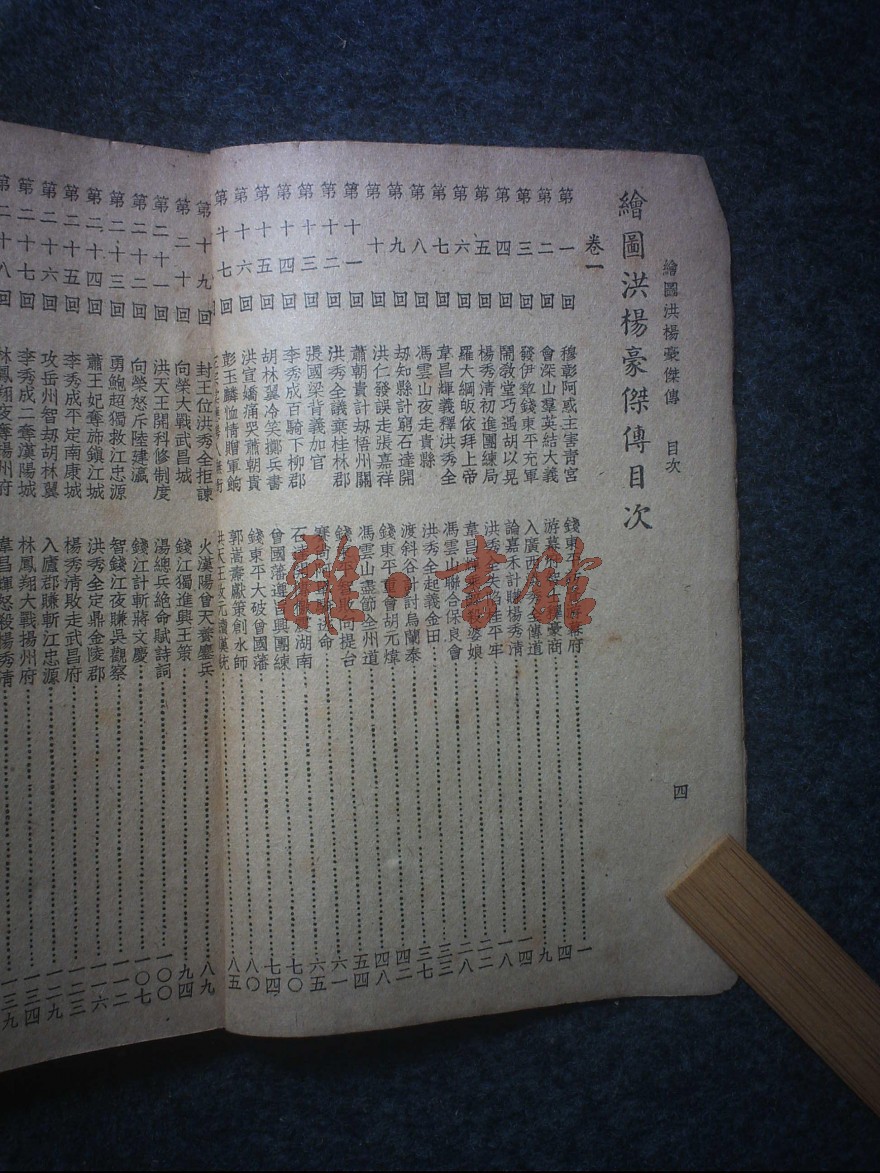 繪圖洪楊豪傑傳 目次 四
繪圖洪楊豪傑傳目次
卷一
第一回 穆彰阿或主害青宮 錢東 府 一
第二回 會深山羣英結大義 游幕府 豪商 四
第三回 發伊犂錢東平充軍 入廣西 秀全傳道 九
第四回 鬧敎堂巧遇胡以晃 論嘉禾計賺楊秀清 一四
第五回 楊秀清初進團練局 洪秀全失陷桂平牢 一八
第六回 羅大綱皈依拜上帝 韋昌輝 婆娘 二二
第七回 韋昌輝義釋洪秀全 馮雲山聯合保良會 二八
第八回 馮雲山夜走貴縣 洪秀全起義金田 三三
第九回 刼知縣計窮石達開 渡斜谷計討烏蘭泰 三七
第十回 洪仁發誤走張嘉祥 錢東平重會胡元煒 四二
第十一回 蕭朝貴計刼梧州關 馮雲山盡節全州道 四八
第十二回 洪秀全議棄桂林郡 錢東平 敗向提台 五四
第十三回 張國梁背義加官 賽 命 六一
第十四回 李秀成百騎下柳郡 石 湖南 六五
第十五回 胡林翼冷笑擲兵書 曾國藩遵旨興團練 七〇
第十六回 洪宣嬌痛哭蕭朝貴 錢東平大破曾國藩 七四
第十七回 彭玉麟恤情贈軍餉 郭嵩燾獻策創水師 八〇
洪天王改元 漢統 八五
第十九回 封王位洪秀全拒諫 火漢陽曾天養鏖兵 八九
第二十回 向榮大戰武昌城 錢江獨進興王策 九四
第二十一回 洪天王開科修制度 湯總兵絶命賦詩詞 一〇〇
第二十二回 向榮怒斥陸建瀛 錢江計斬將文慶 一〇七
第二十三回 勇鮑超獨救江忠源 智錢江夜賺吳觀察 一一二
第二十四回 蕭王妃奪旆鎭江城 洪秀全定鼎金陵郡 一一六
第二十五回 李秀成平定南康城 楊秀清敗走武昌府 一二三
第二十六回 攻岳州智刼胡林翼 入廬郡賺斬江忠源 一二九
第二十七回 李秀成二奪漢陽城 林鳳翔大戰揚州府 一三四
第二十八回 林鳳翔夜奪揚州府 韋昌輝怒殺楊秀清 一三九
雜·書館